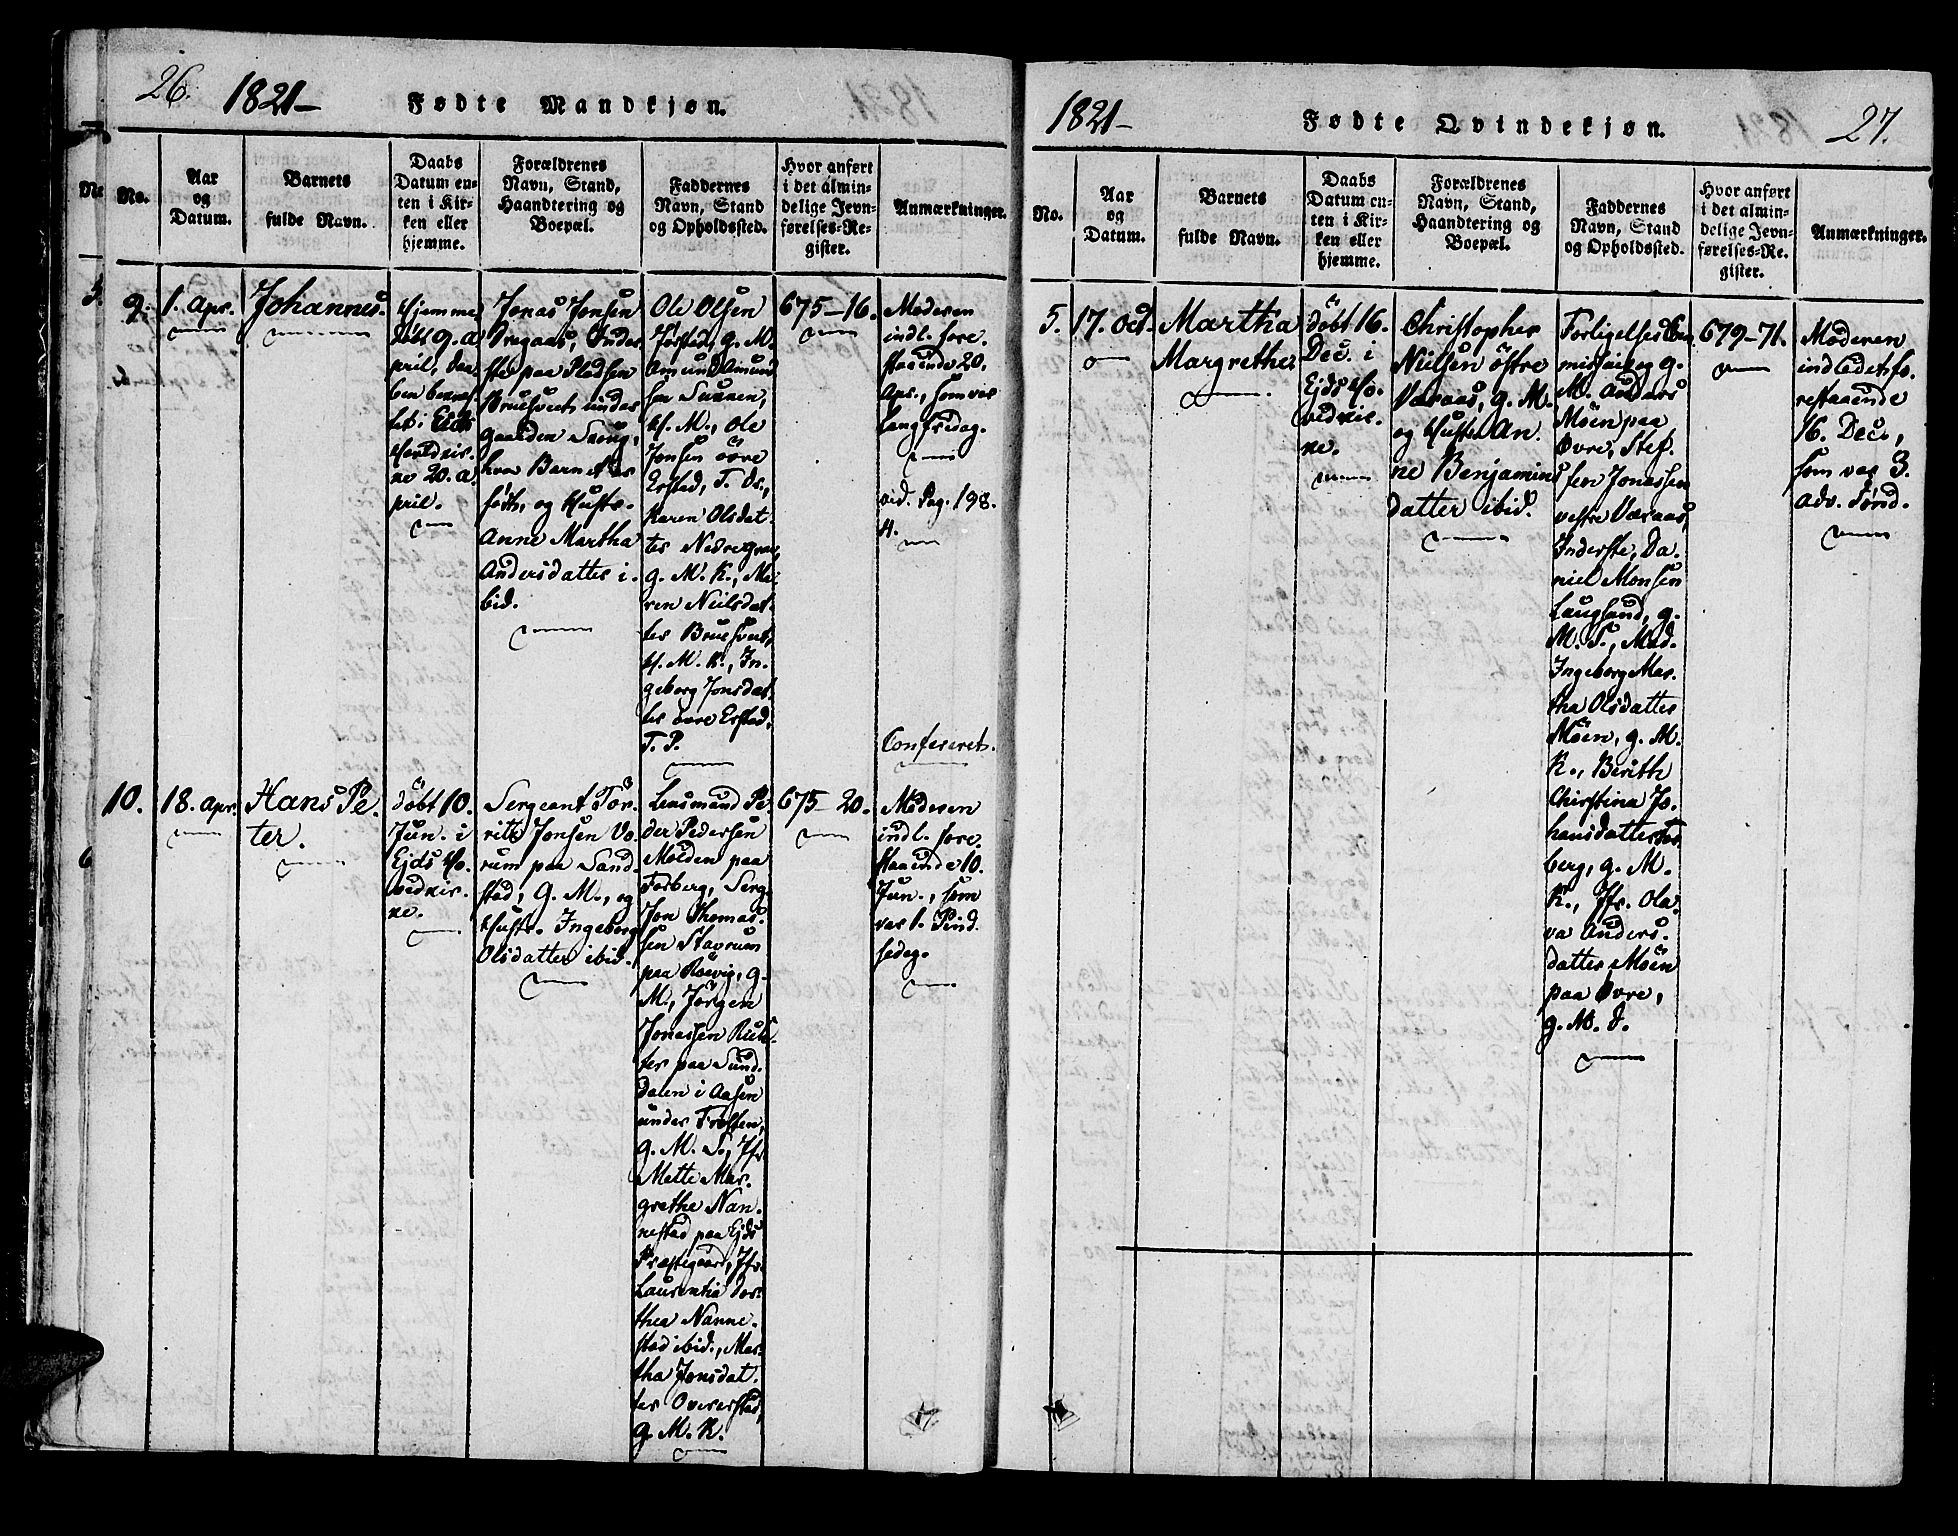 26.
1821-
Fødte Mandkjøn.
No.
Aar
og
Datum.
Barnets
fulde Navn.
Daabs
Datum en-
ten i Kir-
ken eller
hjemme.
Forældrenes
Navn, Stand,
Haandtering og
Boepæl.
Faddernes
Navn, Stand
og Opholdssted.
Hvor anført
i det almin-
delige Jevn-
førelses-Re-
gister.
Anmærkninger.
9.
1. Apr.
Johannes.
Hjemme
döbt 9. A
pril, Daa
ben bekræf
tet i Ejds
Hovedkir-
ke 20. A
pril.
Jonas Jonsen
Inder
ste paa Pladsen
Bruesveet under
Gaarden
hvor Barnet er
födt, og Hustr.
Anne Martha
Andersdatter i-
bid.
Ole Olsen
Förstad, g. M.
Amund Amund
sen
H. M., Ole
Jonsen övre
Erstad, T. Dr.,
Karen Olsdat-
ter
g. M. K., Ma
ren Nielsdat-
ter Bruesveet,
H. M. K., In-
geborg Jonsdat-
ter övre Erstad,
T. P.
675-16.
Moderen
indl. fore-
staaende 20.
Apr., som var
Langfredag.
vid. Pag. 198.
4.
Confereret.
10.
18. Apr.
Hans Pe
ter.
döbt 10.
Jun. i
Ejds Ho-
vedkir-
ke.
Sergeant Tör-
ris Jonsen Vo-
rum paa Sand-
stad, G. M., og
Hustr. Ingeborg
Olsdatter ibid.
Lensmand Pe
der Pedersen
Molden paa
Forberg, Serg.
Jon Thomas-
sen Stavrum
paa Rosvig, g.
M., Jörgen
Jonassen
ter paa Sund-
dalen i Aasen
under Frosten,
g. M. S., Jfr.
Mette Mar-
grethe Nan-
nestad paa Ejds
Præstegaard, Jfr.
Laurentia Dor-
thea Nanne-
stad ibid., Mar-
tha Jonsdat-
ter Overerstad,
g. M. K.
675-20.
Moderen
indl. fore-
staaende 10.
Jun., som
var 1. Pind-
sedag.
1821-
Fødte Qvindekjøn.
27.
No.
Aar
og
Datum.
Barnets
fulde Navn.
Daabs
Datum en-
ten i Kir-
ken eller
hjemme.
Forældrenes
Navn, Stand,
Haandtering og
Boepæl.
Faddernes
Navn, Stand
og Opholdssted.
Hvor anført
i det almin-
delige Jevn-
førelses-Re-
gister.
Anmærkninger.
5.
17. Oct.
Martha
Margrethe.
döbt 16.
Dec. i
Ejds Ho-
vedkir-
ke.
Christopher
Nielsen östre
Væraas, g. M.
og Hustr. An-
ne Benjamins
datter ibid.
Forligelses Com
missair g.
M. Anders
Möen paa
Övre, Stef-
fen Jonassen
vestre Væraas,
Inderste, Da-
niel Monsen
Laugsand, g.
M. S., Mad.
Ingeborg Mar-
tha Olsdatter
Möen, g. M.
K., Berith
Christina Jo-
hansdatter For
berg, g. M.
K., Jfr. Ola-
va Anders-
datter Möen
paa Övre,
g. M. d.
679-71.
Moderen
indledet fo-
restaaende
16. Dec.,
som var 3.
Adv. Sönd.